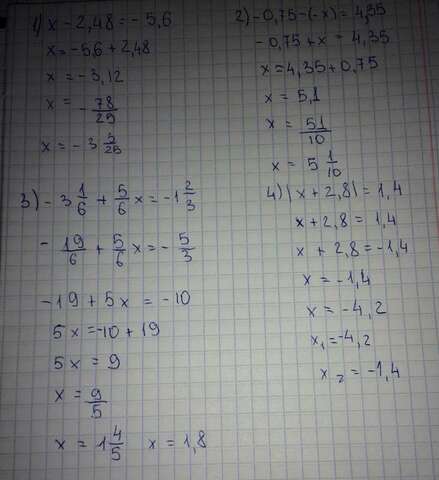 1) x - 2,48 = - 5,6
x = -5,6 + 2,48
x = - 3,12
x = - 78/25
x = - 3 3/25
2) - 0,75 - (-x) = 4,35
- 0,75 + x = 4,35
x = 4,35 + 0,75
x = 5,1
x = 51/10
x = 5 1/10
3) - 3 1/6 + 5/6 x = - 1 2/3
- 19/6 + 5/6 x = - 5/3
-19 + 5x = -10
5x = -10 + 19
5x = 9
x = 9/5
x = 1 4/5 x = 1,8
4) |x + 2,8| = 1,4
x + 2,8 = 1,4
x + 2,8 = -1,4
x = -1,4
x = -4,2
x₁ = -4,2
x₂ = -1,4